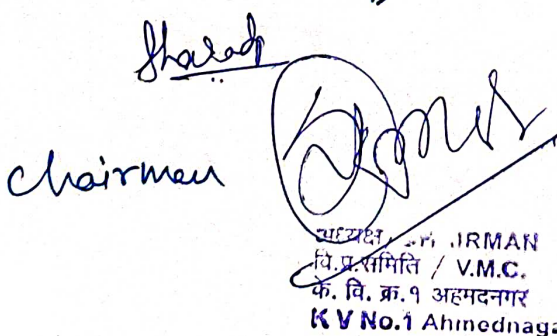 Sharad
Chairman
अध्यक्ष / CHAIRMAN
वि.प्र.समिति / V.M.C.
के. वि. क्र.१ अहमदनगर
K V No.1 Ahmednaga